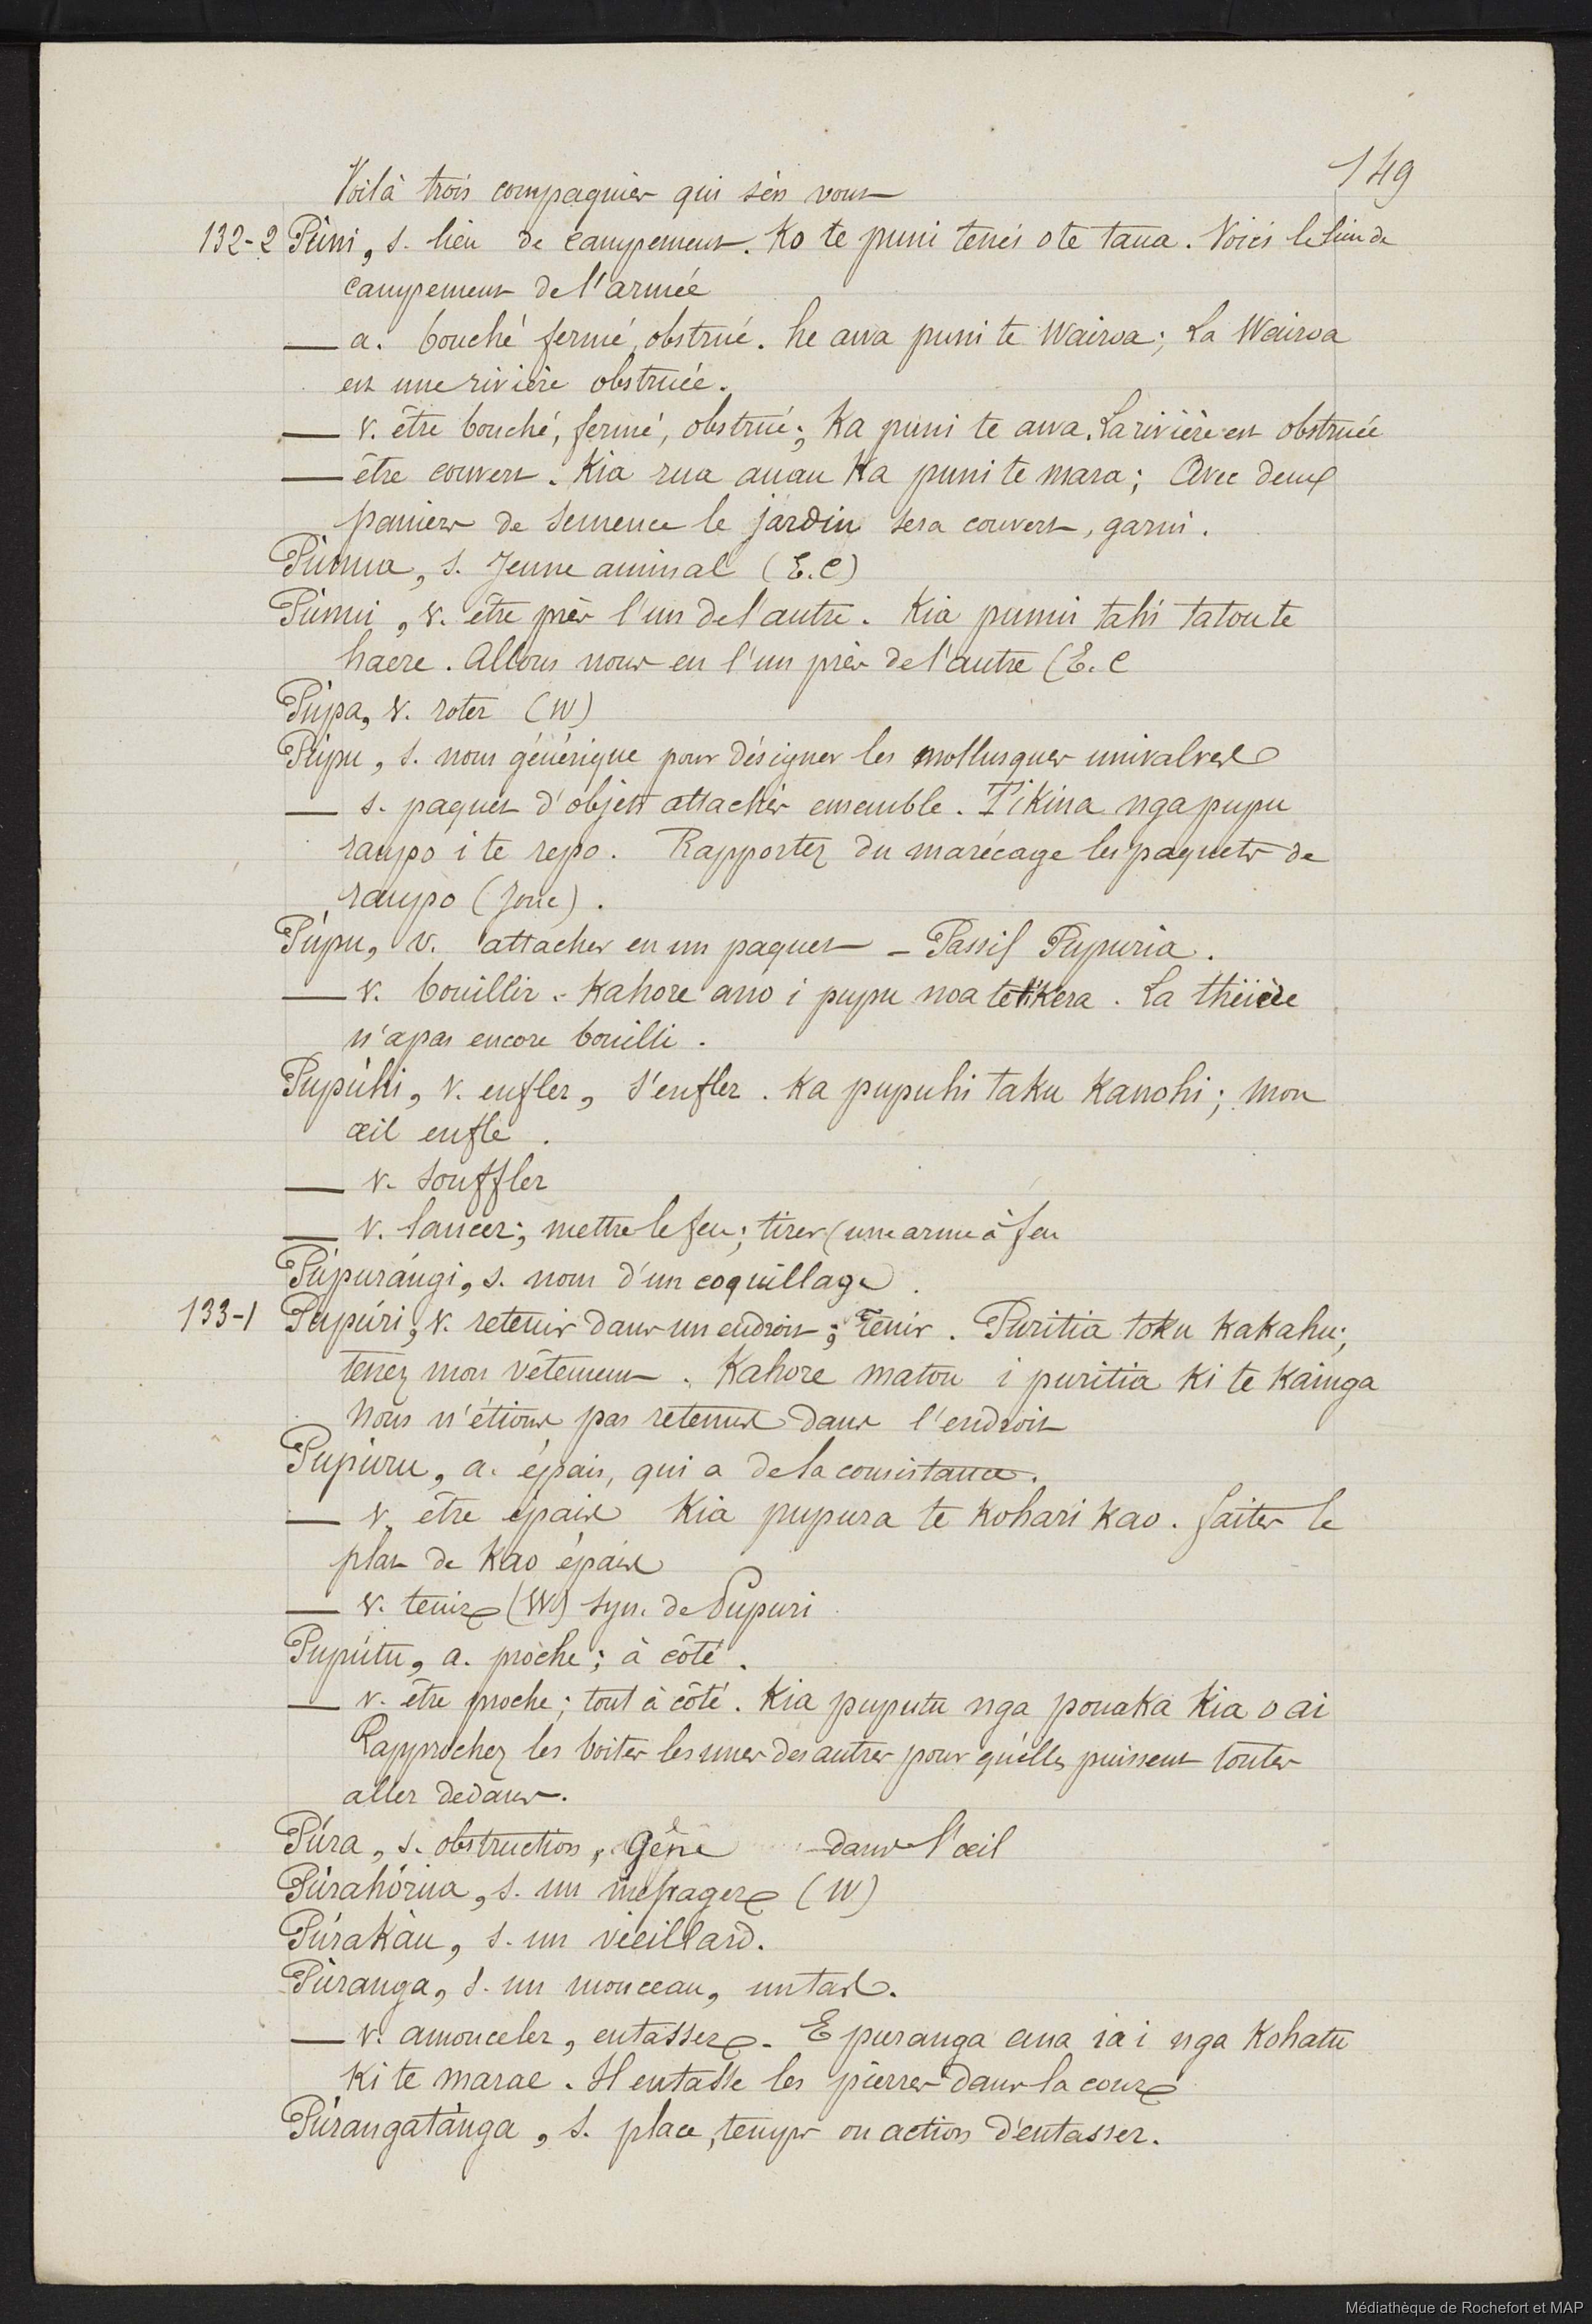 149
Voilà trois compagnies qui s'en vont
132-2 Púni, s. lieu de campement. Ko te puni tenei o te taua. Voici le lieu de
campement de l'armée
— a. bouché fermé, obstrué. he awa puni te Wairoa; La Wairoa
est une rivière obstruée.
— v. être bouché, fermé, obstrué; Ka puni te awa. La rivière est obstruée
— être couvert. Kia rua auau Ka puni te mara; Avec deux
paniers de semence le jardin sera couvert, garni.
Púnua, s. Jeune animal (E.C)
Púnui, v. être près l'un de l'autre. Kia punui tahi tatou te
haere. Allons nous en l'un près de l'autre (E.C
Púpa, v. roter (W)
Púpu, s. nom générique pour désigner les mollusques univalves
— s. paquet d'objets attachés ensemble. Tikina nga pupu
raupo i te repo. Rapportez du marécage les paquets de
raupo (jonc).
Púpu, v. attacher en un paquet – Passif Pupuria.
— v. bouillir. Kahore ano i pupu noa te tikera. La théière
n'a pas encore bouilli.
Pupúhi, v. enfler, s'enfler. Ka pupuhi taku Kanohi; mon
œil enfle.
— v. souffler
— v. lancer; mettre le feu; tirer (une arme à feu
Púpurángi, s. nom d'un coquillage.
133-1 Pupúri, v. retenir dans un endroit; Tenir. Puritia toku Kakahu;
tenez mon vêtement. Kahore matou i puritia Ki te Kainga
Nous n'étions pas retenus dans l'endroit
Pupúru, a. épais, qui a de la consistance.
— v. être épais Kia pupura te Kohari Kao. faites le
plat de Kao épais
— v. tenir (W) syn. de Pupuri
Pupútu, a. proche; à côté.
— v. être proche; tout à côté. Kia puputu nga pouaka Kia o ai
Rapprochez les boites les unes des autres pour qu'elles puissent toutes
aller dedans.
Púra, s. obstruction, Gêne dans l'œil
Púrahórua, s. un messager (W)
Púrakàu, s. un vieillard.
Púranga, s. un monceau, un tas.
— v. amonceler, entasser. E puranga ana ia i nga Kohatu
Ki te marae. Il entasse les pierres dans la cour
Púrangatánga, s. place, temps ou action d'entasser.
Médiathèque de Rochefort et MAP